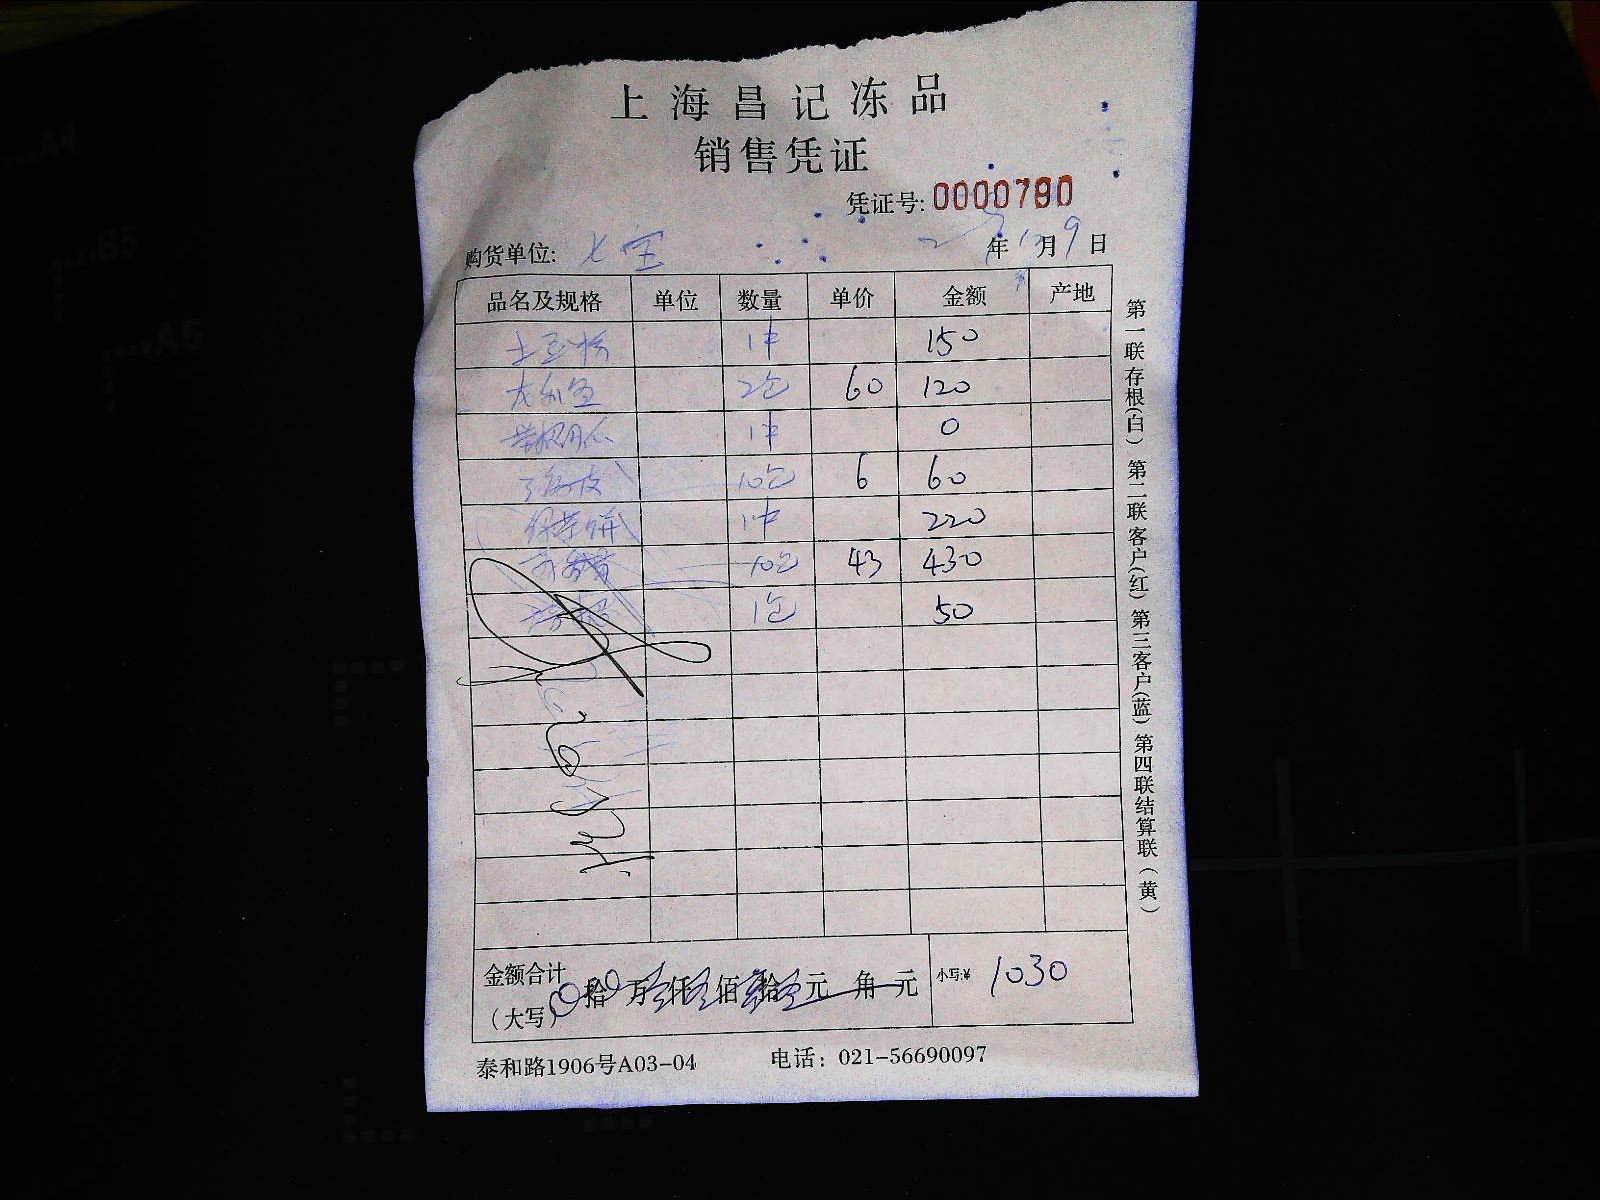 上海昌记冻品
销售凭证
凭证号: 0000780
购货单位: 七宝 年 12月9日
品名及规格 单位 数量 单价 金额 产地
1件 150
龙利鱼 2包 60 120
1件 0
10包 6 60
1件 220
10包 43 430
1包 50
金额合计（大写） 拾 万 仟 佰 拾 元 角 元 小写:¥ 1030
泰和路1906号A03-04 电话: 021-56690097
第一联存根(白) 第二联客户(红) 第三客户(蓝) 第四联结算联(黄)
A4
B5
A5